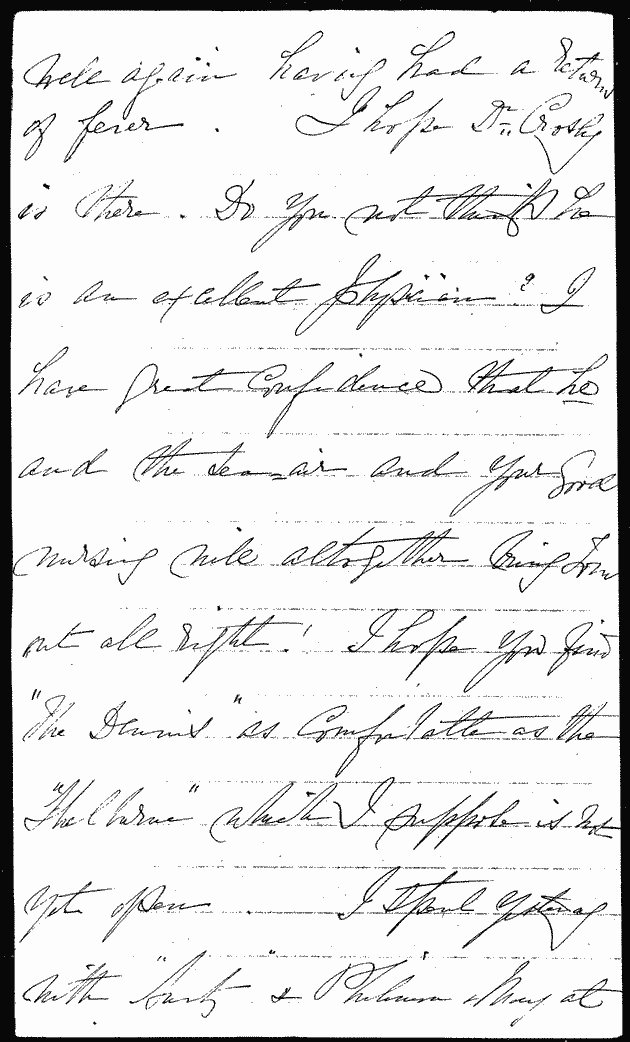 well again having had a return
of fever. I hope Dr. Crosby
is there. Do you not think he
is an excellent physician? I
have great confidence that he
and the sea-air and your good
nursing will altogether bring Tom
out all right! I hope you find
"The Dennis" as comfortable as the
"Shelburne" which I suppose is not
yet open. I spent yesterday
with "Aunty" & & May at